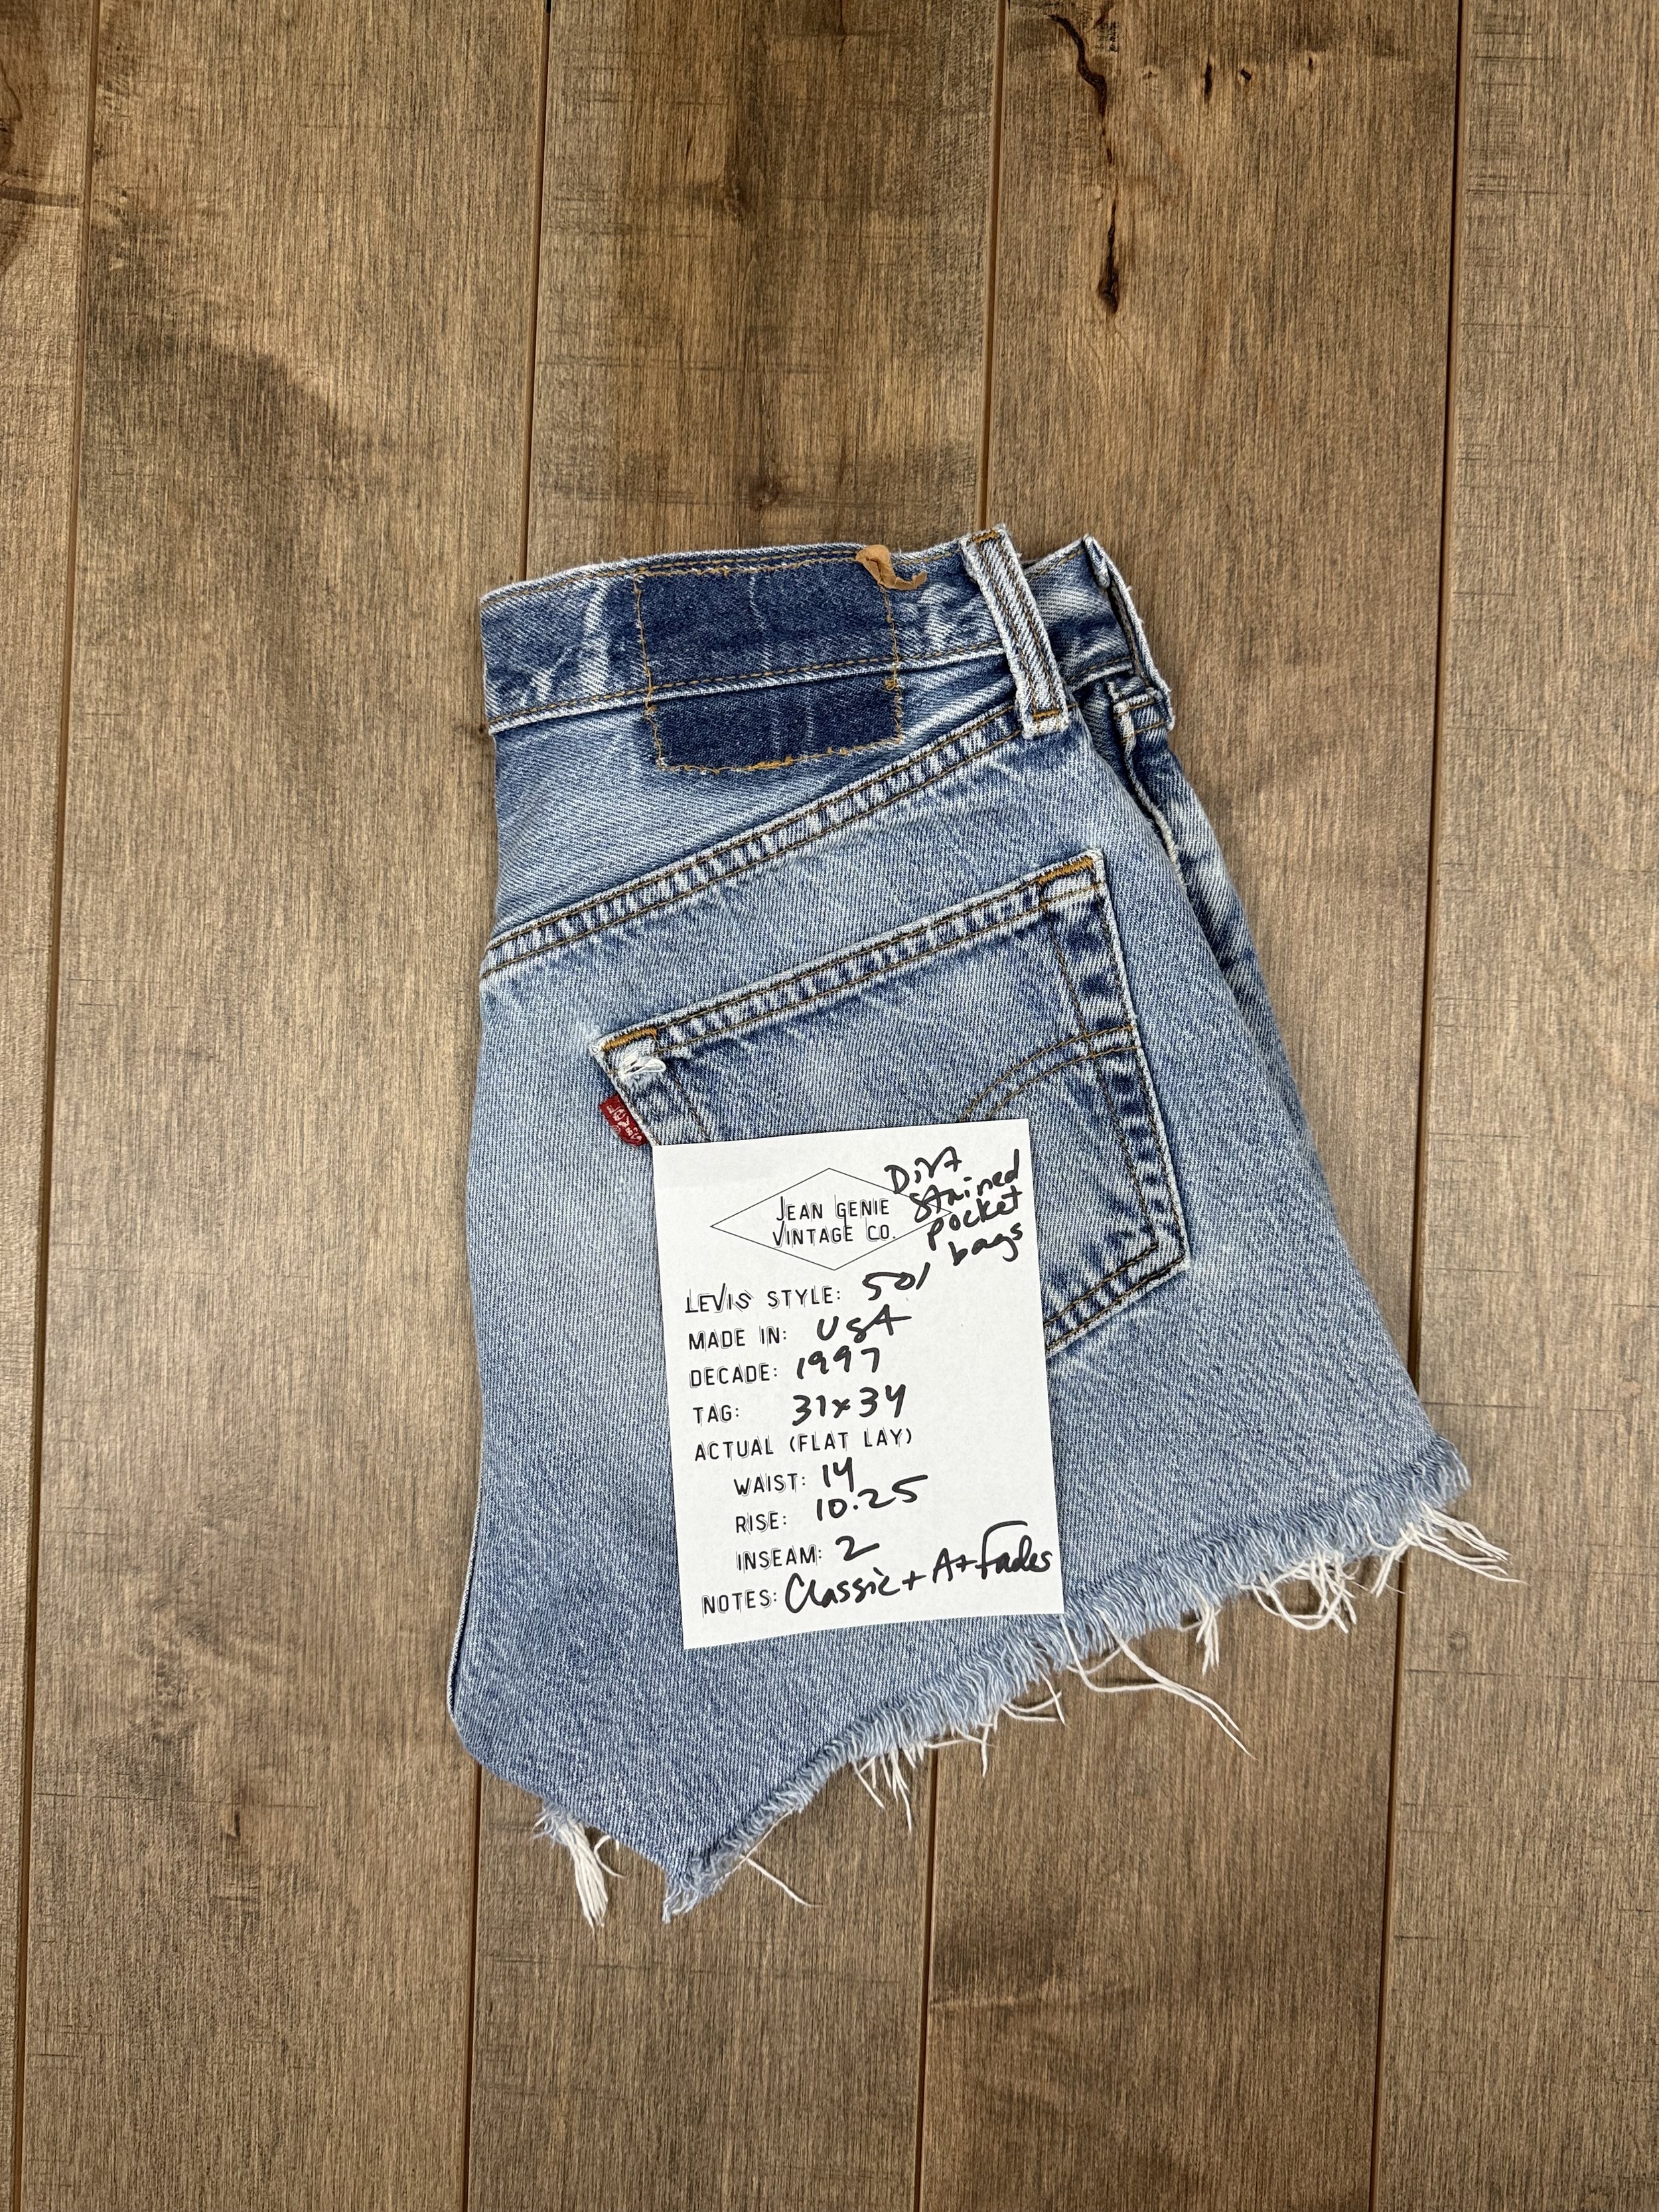 LEVI'S
Dirt
stained
pocket
bags
JEAN GENIE
VINTAGE CO.
LEVIS STYLE: 501
MADE IN: USA
DECADE: 1997
TAG: 31x34
ACTUAL (FLAT LAY)
WAIST: 14
RISE: 10.25
INSEAM: 2
NOTES: Classic + A+ Fades